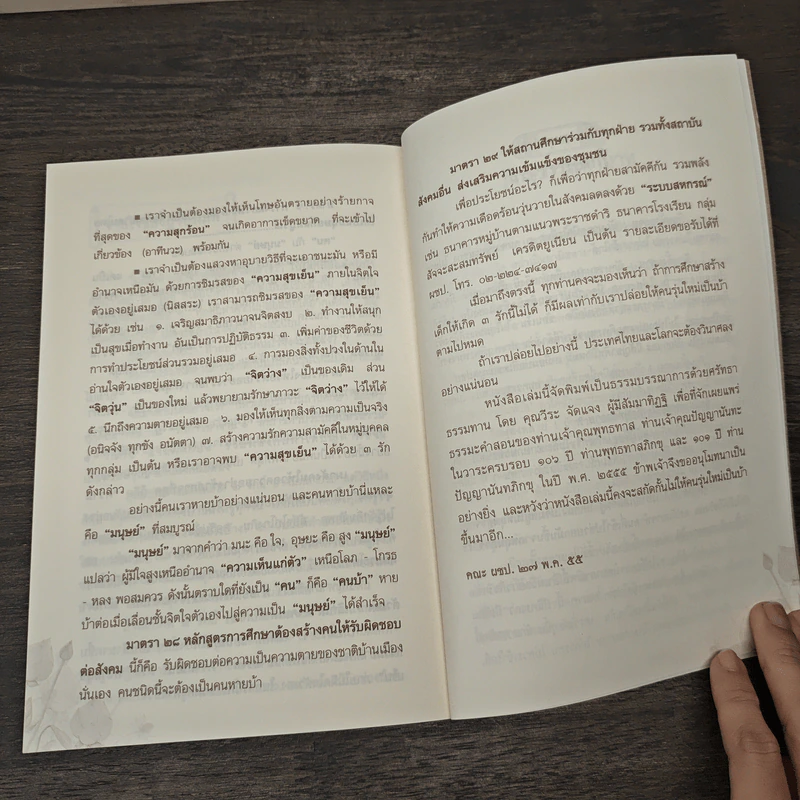 ■ เราจำเป็นต้องมองให้เห็นโทษอันตรายอย่างร้ายกาจ
ที่สุดของ “ความสุกร้อน” จนเกิดอาการเข็ดขยาด ที่จะเข้าไป
เกี่ยวข้อง (อาทีนวะ) พร้อมกัน
■ เราจำเป็นต้องแสวงหาอุบายวิธีที่จะเอาชนะมัน หรือมี
อำนาจเหนือมัน ด้วยการชิมรสของ “ความสุขเย็น” ภายในจิตใจ
ตัวเองอยู่เสมอ (นิสสระ) เราสามารถชิมรสของ “ความสุขเย็น”
ได้ด้วย เช่น ๑. เจริญสมาธิภาวนาจนจิตสงบ ๒. ทำงานให้สนุก
เป็นสุขเมื่อทำงาน อันเป็นการปฏิบัติธรรม ๓. เพิ่มค่าของชีวิตด้วย
การทำประโยชน์ส่วนรวมอยู่เสมอ ๔. การมองสิ่งทั้งปวงในด้านใน
อ่านใจตัวเองอยู่เสมอ จนพบว่า “จิตว่าง” เป็นของเดิม ส่วน
“จิตวุ่น” เป็นของใหม่ แล้วพยายามรักษาภาวะ “จิตว่าง” ไว้ให้ได้
๕. นึกถึงความตายอยู่เสมอ ๖. มองให้เห็นทุกสิ่งตามความเป็นจริง
(อนิจจัง ทุกขัง อนัตตา) ๗. สร้างความรักความสามัคคีในหมู่บุคคล
ทุกกลุ่ม เป็นต้น หรือเราอาจพบ “ความสุขเย็น” ได้ด้วย ๓ รัก
ดังกล่าว
อย่างนี้คนเราหายบ้าอย่างแน่นอน และคนหายบ้านี่แหละ
คือ “มนุษย์” ที่สมบูรณ์
“มนุษย์” มาจากคำว่า มนะ คือ ใจ, อุษยะ คือ สูง “มนุษย์”
แปลว่า ผู้มีใจสูงเหนืออำนาจ “ความเห็นแก่ตัว” เหนือโลภ - โกรธ
- หลง พอสมควร ดังนั้นตราบใดที่ยังเป็น “คน” ก็คือ “คนบ้า” หาย
บ้าต่อเมื่อเลื่อนชั้นจิตใจตัวเองไปสู่ความเป็น “มนุษย์” ได้สำเร็จ
มาตรา ๒๘ หลักสูตรการศึกษาต้องสร้างคนให้รับผิดชอบ
ต่อสังคม นี้ก็คือ รับผิดชอบต่อความเป็นความตายของชาติบ้านเมือง
นั่นเอง คนชนิดนี้จะต้องเป็นคนหายบ้า
มาตรา ๒๙ ให้สถานศึกษาร่วมกับทุกฝ่าย รวมทั้งสถาบัน
สังคมอื่น ส่งเสริมความเข้มแข็งของชุมชน
เพื่อประโยชน์อะไร? ก็เพื่อว่าทุกฝ่ายสามัคคีกัน รวมพลัง
กันทำให้ความเดือดร้อนวุ่นวายในสังคมลดลงด้วย “ระบบสหกรณ์”
เช่น ธนาคารหมู่บ้านตามแนวพระราชดำริ ธนาคารโรงเรียน กลุ่ม
สัจจะสะสมทรัพย์ เครดิตยูเนียน เป็นต้น รายละเอียดขอรับได้ที่
ผชป. โทร. ๐๒-๒๒๔-๗๔๑๗
เมื่อมาถึงตรงนี้ ทุกท่านคงจะมองเห็นว่า ถ้าการศึกษาสร้าง
เด็กให้เกิด ๓ รักนี้ไม่ได้ ก็มีผลเท่ากับเราปล่อยให้คนรุ่นใหม่เป็นบ้า
ตามไปหมด
ถ้าเราปล่อยไปอย่างนี้ ประเทศไทยและโลกจะต้องวินาศลง
อย่างแน่นอน
หนังสือเล่มนี้จัดพิมพ์เป็นธรรมบรรณาการด้วยศรัทธา
ธรรมทาน โดย คุณวีระ จัดแจง ผู้มีสัมมาทิฏฐิ เพื่อที่จักเผยแพร่
ธรรมะคำสอนของท่านเจ้าคุณพุทธทาส ท่านเจ้าคุณปัญญานันทะ
ในวาระครบรอบ ๑๐๖ ปี ท่านพุทธทาสภิกขุ และ ๑๐๑ ปี ท่าน
ปัญญานันทภิกขุ ในปี พ.ศ. ๒๕๕๕ ข้าพเจ้าจึงขออนุโมทนาเป็น
อย่างยิ่ง และหวังว่าหนังสือเล่มนี้คงจะสกัดกั้นไม่ให้คนรุ่นใหม่เป็นบ้า
ขึ้นมาอีก...
คณะ ผชป. ๒๗ พ.ค. ๕๕